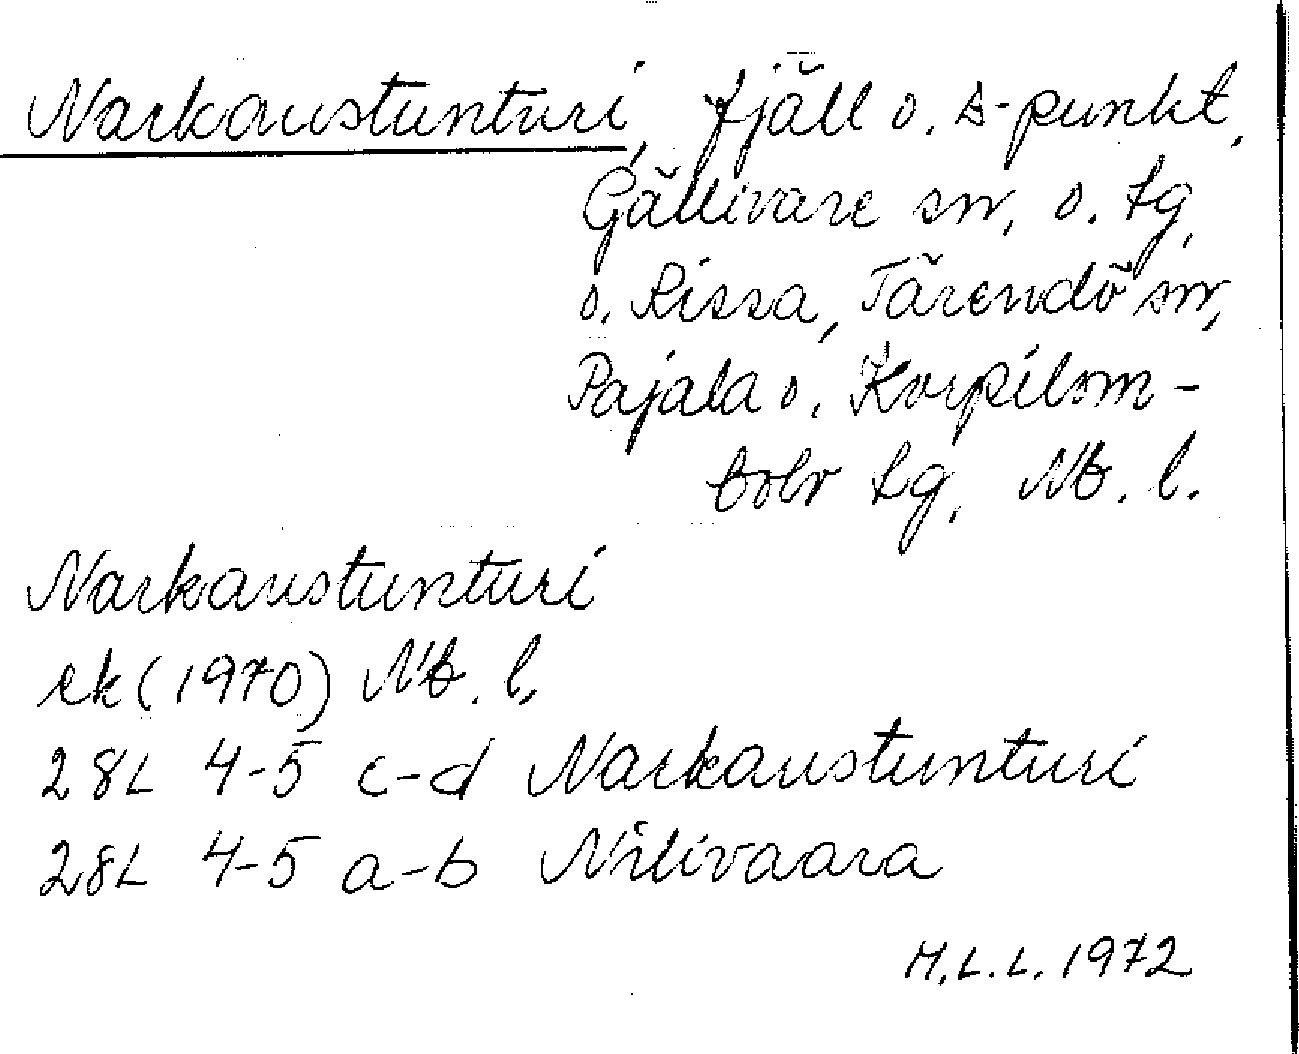 Narkaustunturi, fjäll o. Δ-punkt,
Gällivare sn, o. tg,
o. Rissa, Tärendö sn,
Pajala o. Korpilom-
bolo tg, Nb. l.
Narkaustunturi
ek (1970) Nb. l.
28L 4-5 c-d Narkaustunturi
28L 4-5 a-b Nilivaara
H.L.L. 1972